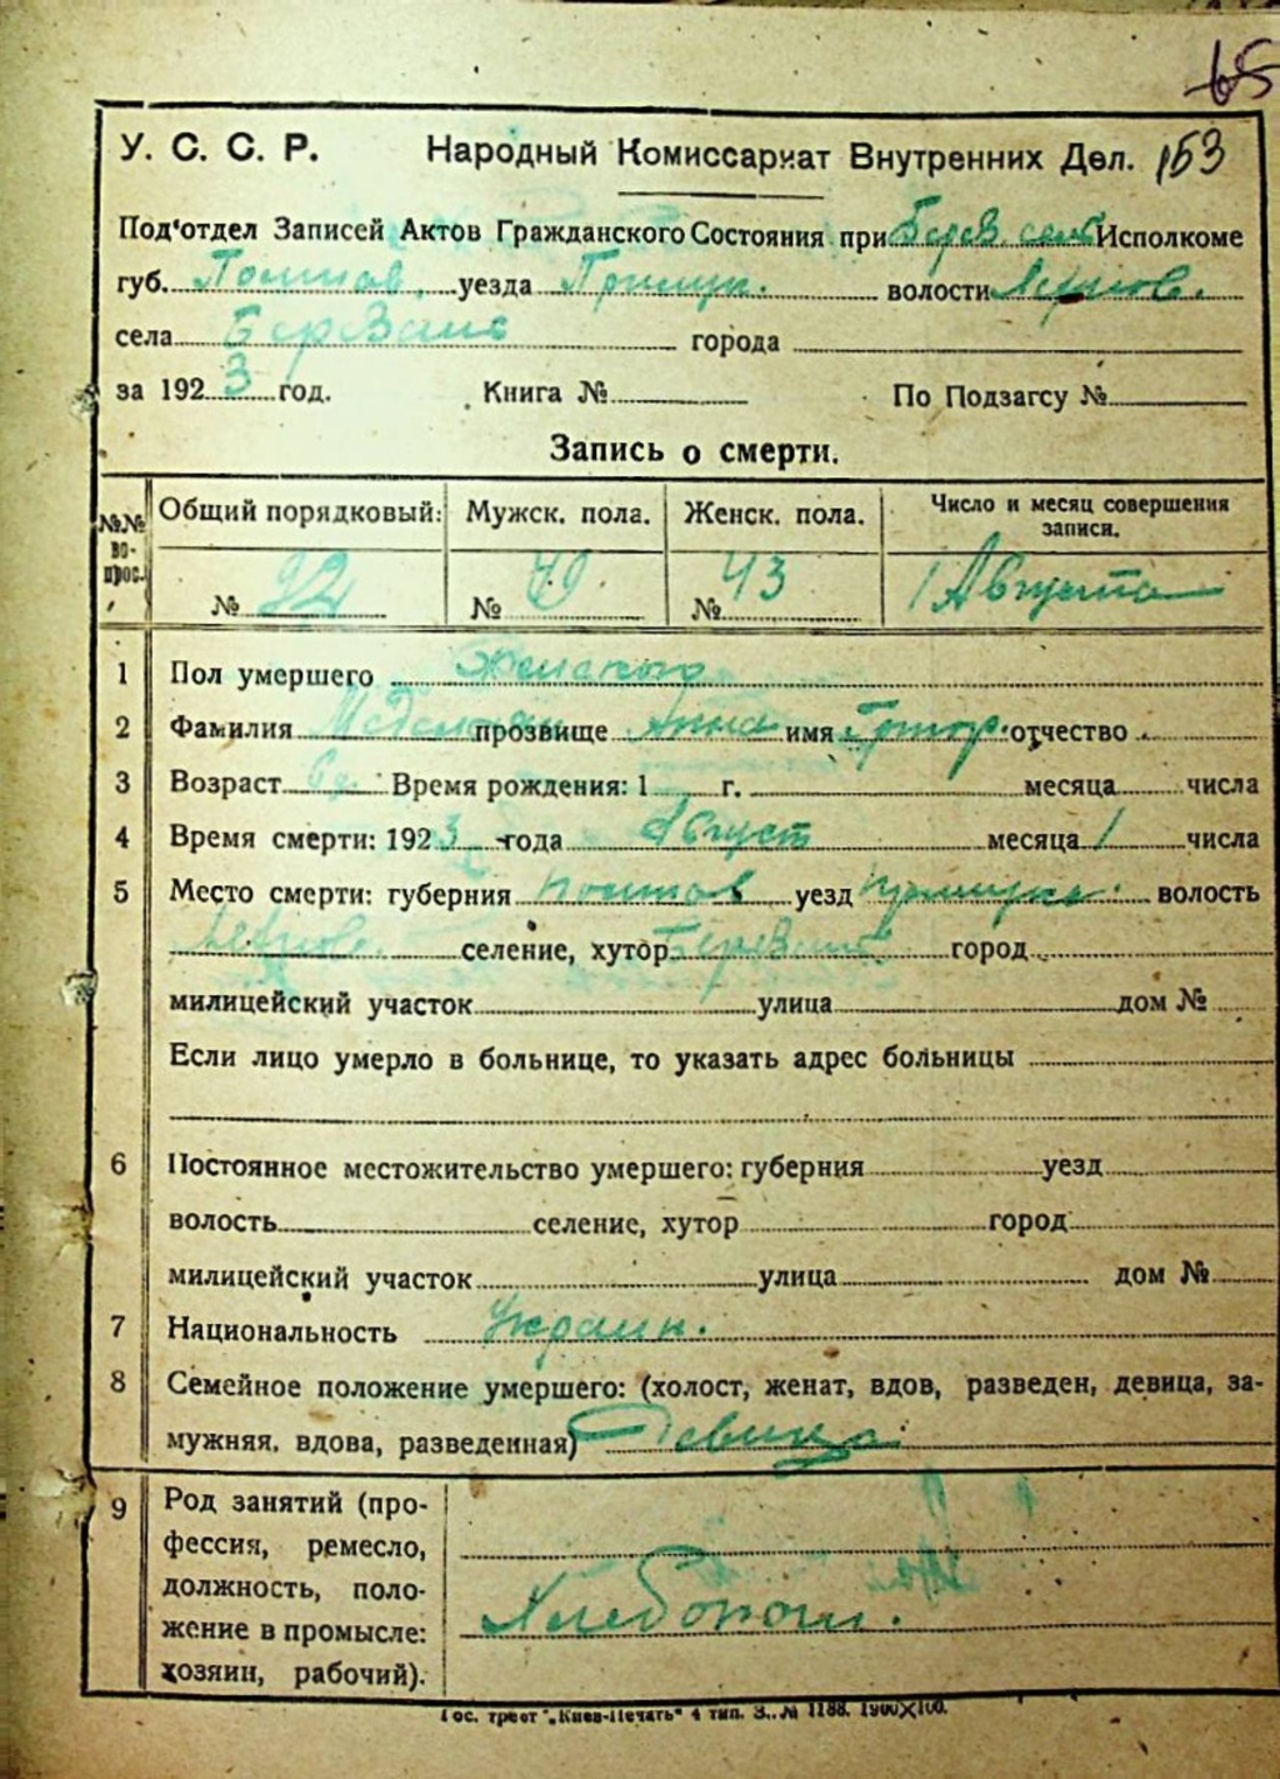 65
У. С. С. Р. Народный Комиссариат Внутренних Дел. 153
Под'отдел Записей Актов Гражданского Состояния при Берез. сель Исполкоме
губ. Полтав. уезда Прилук. волости
села города
за 1923 год. Книга № По Подзагсу №
Запись о смерти.
№№ во-прос. Общий порядковый: Мужск. пола. Женск. пола. Число и месяц совершения записи.
№ 92 № 49 № 43 1 Августа
1 Пол умершего Женского
2 Фамилия прозвище Анна имя Григор. отчество
3 Возраст Время рождения: 1 г. месяца числа
4 Время смерти: 1923 года Август месяца 1 числа
5 Место смерти: губерния Полтав уезд Прилуцк. волость
селение, хутор город
милицейский участок улица дом №
Если лицо умерло в больнице, то указать адрес больницы
6 Постоянное местожительство умершего: губерния уезд
волость селение, хутор город
милицейский участок улица дом №
7 Национальность Украин.
8 Семейное положение умершего: (холост, женат, вдов, разведен, девица, за-
мужняя, вдова, разведенная) Девица
9 Род занятий (про-
фессия, ремесло,
должность, поло-
жение в промысле: Хлебопаш.
хозяин, рабочий).
Гос. трест „Киев-Печать" 4 тип. З. № 1188. 1900×100.